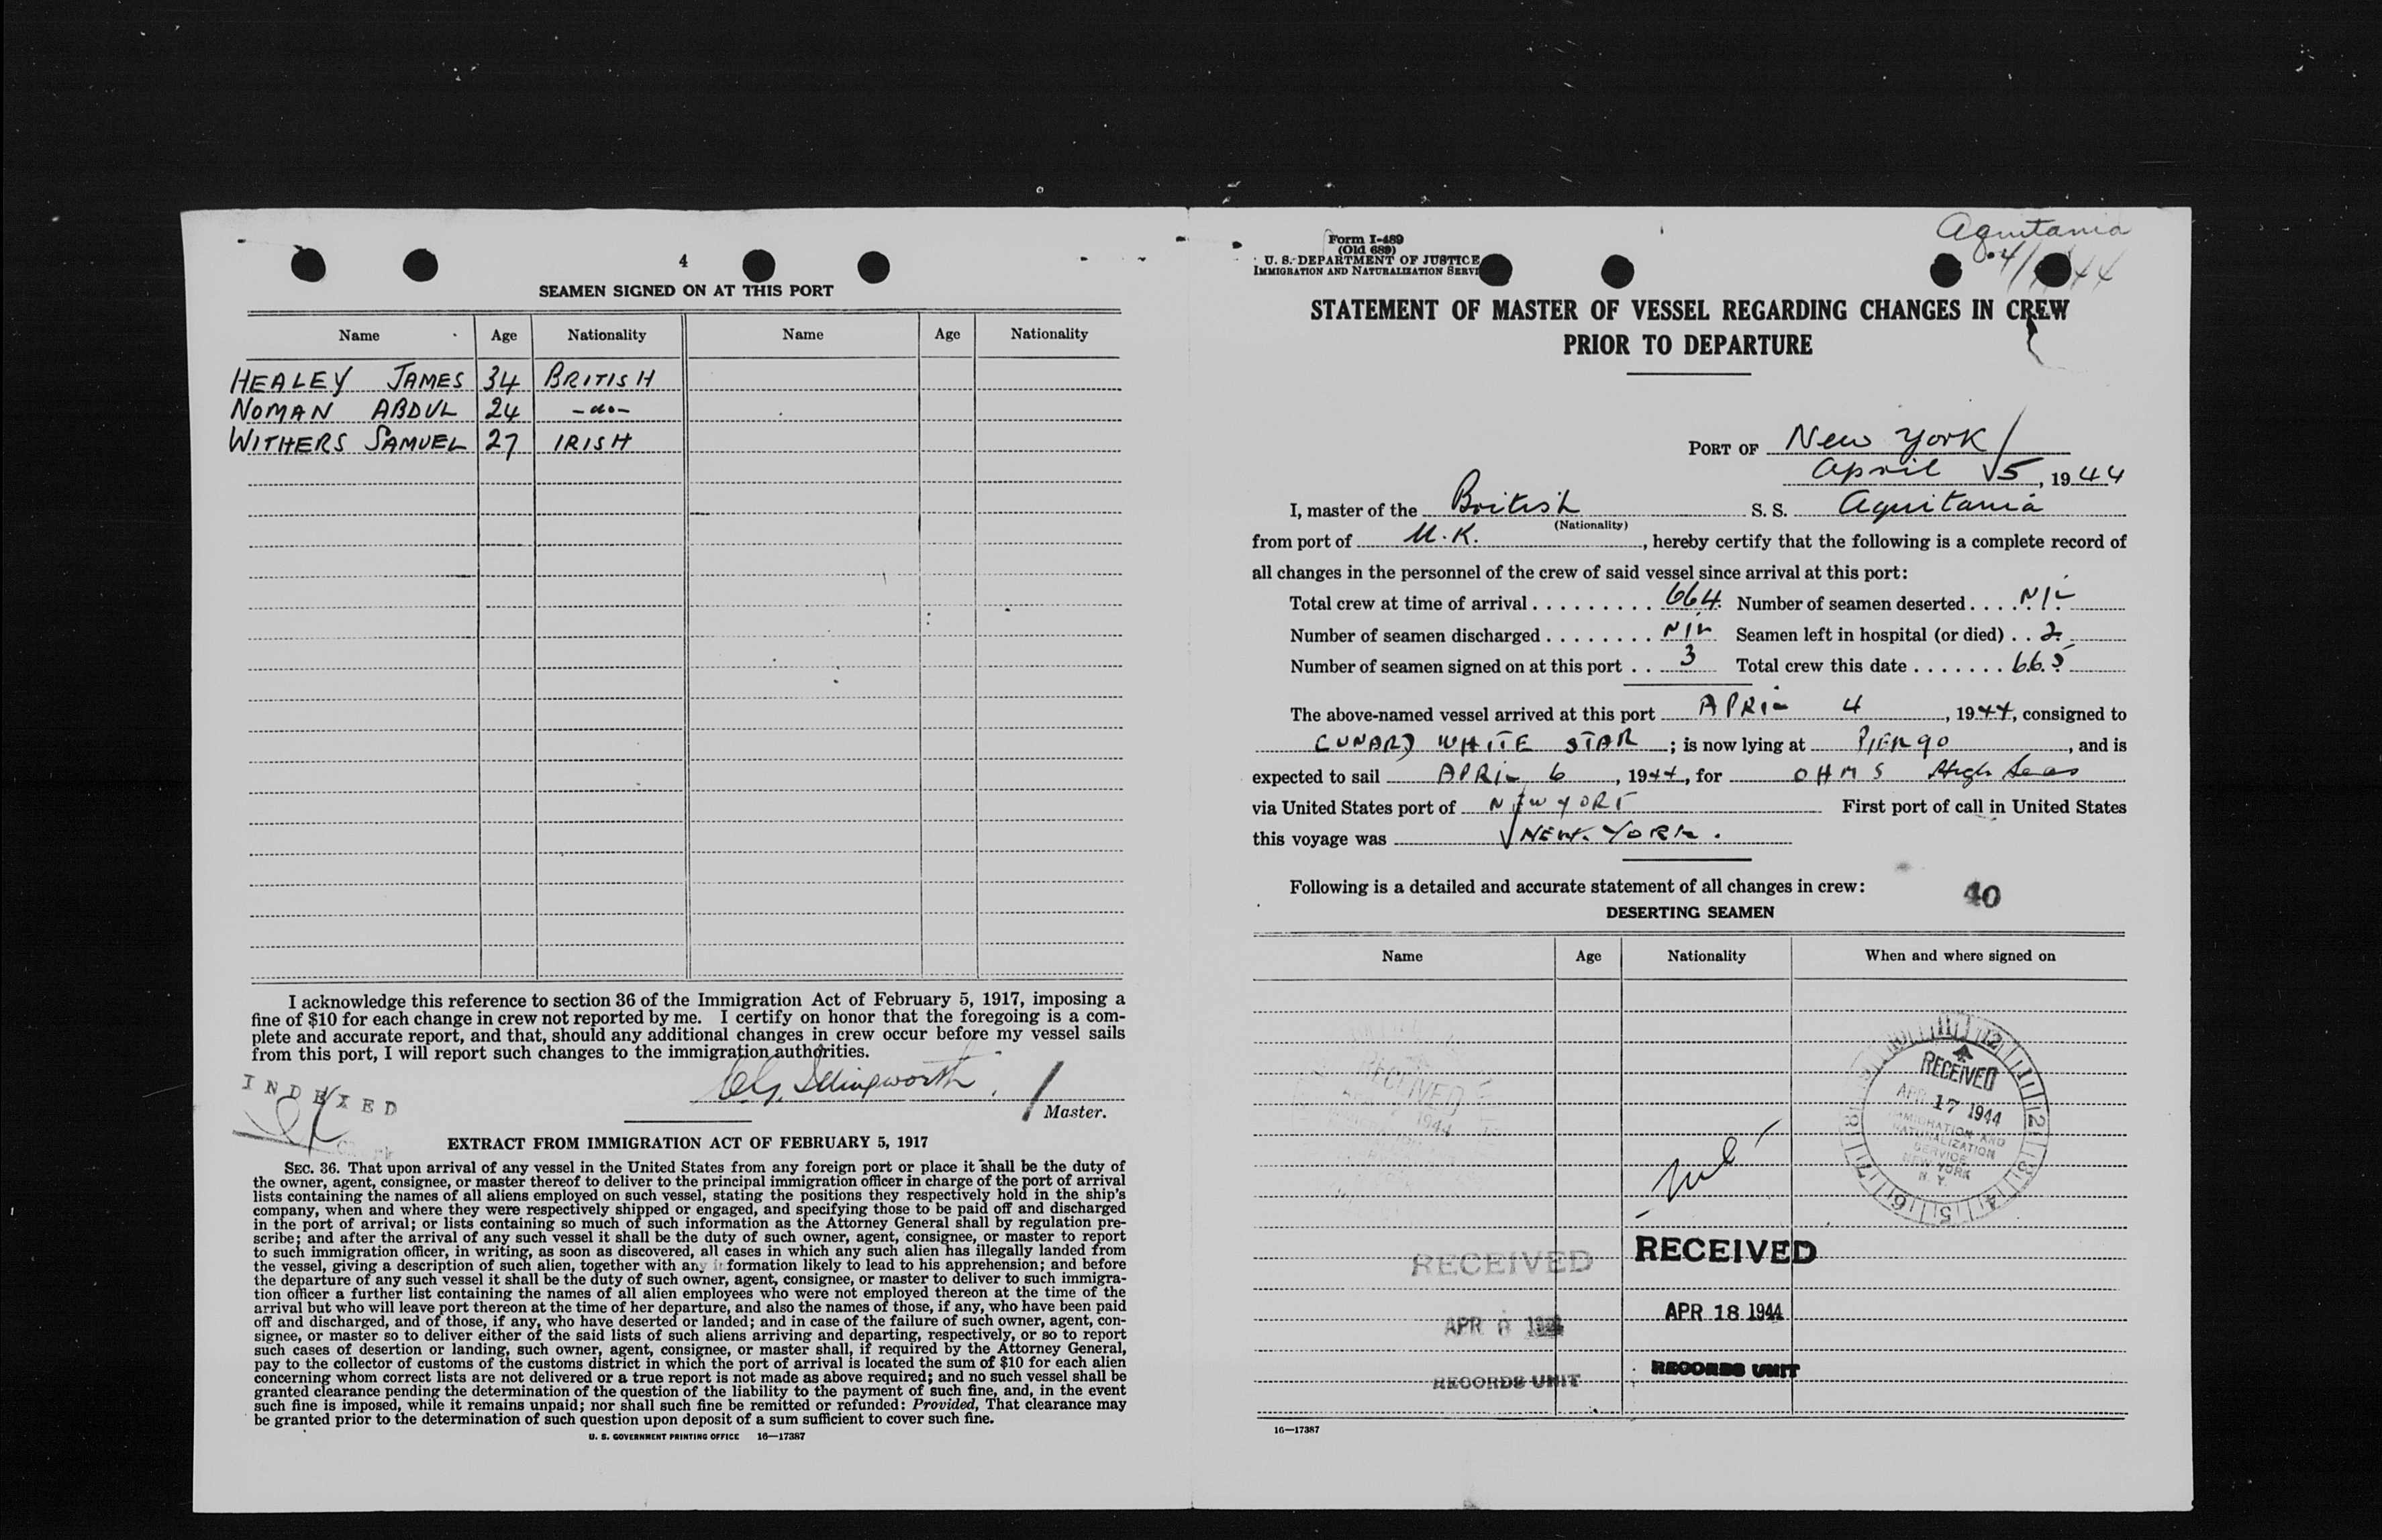 4
SEAMEN SIGNED ON AT THIS PORT
Name Age Nationality Name Age Nationality
HEALEY JAMES 34 BRITISH
NOMAN ABDUL 24 -do-
WITHERS SAMUEL 27 IRISH
I acknowledge this reference to section 36 of the Immigration Act of February 5, 1917, imposing a
fine of $10 for each change in crew not reported by me. I certify on honor that the foregoing is a com-
plete and accurate report, and that, should any additional changes in crew occur before my vessel sails
from this port, I will report such changes to the immigration authorities.
INDEXED
Illingworth
Master.
EXTRACT FROM IMMIGRATION ACT OF FEBRUARY 5, 1917
SEC. 36. That upon arrival of any vessel in the United States from any foreign port or place it shall be the duty of
the owner, agent, consignee, or master thereof to deliver to the principal immigration officer in charge of the port of arrival
lists containing the names of all aliens employed on such vessel, stating the positions they respectively hold in the ship's
company, when and where they were respectively shipped or engaged, and specifying those to be paid off and discharged
in the port of arrival; or lists containing so much of such information as the Attorney General shall by regulation pre-
scribe; and after the arrival of any such vessel it shall be the duty of such owner, agent, consignee, or master to report
to such immigration officer, in writing, as soon as discovered, all cases in which any such alien has illegally landed from
the vessel, giving a description of such alien, together with any information likely to lead to his apprehension; and before
the departure of any such vessel it shall be the duty of such owner, agent, consignee, or master to deliver to such immigra-
tion officer a further list containing the names of all alien employees who were not employed thereon at the time of the
arrival but who will leave port thereon at the time of her departure, and also the names of those, if any, who have been paid
off and discharged, and of those, if any, who have deserted or landed; and in case of the failure of such owner, agent, con-
signee, or master so to deliver either of the said lists of such aliens arriving and departing, respectively, or so to report
such cases of desertion or landing, such owner, agent, consignee, or master shall, if required by the Attorney General,
pay to the collector of customs of the customs district in which the port of arrival is located the sum of $10 for each alien
concerning whom correct lists are not delivered or a true report is not made as above required; and no such vessel shall be
granted clearance pending the determination of the question of the liability to the payment of such fine, and, in the event
such fine is imposed, while it remains unpaid; nor shall such fine be remitted or refunded: Provided, That clearance may
be granted prior to the determination of such question upon deposit of a sum sufficient to cover such fine.
U. S. GOVERNMENT PRINTING OFFICE 16—17387
Aquitania
Form I-489
(Old 689)
U. S. DEPARTMENT OF JUSTICE
IMMIGRATION AND NATURALIZATION SERVI
STATEMENT OF MASTER OF VESSEL REGARDING CHANGES IN CREW
PRIOR TO DEPARTURE
PORT OF New York
April 5, 1944
I, master of the British S. S. Aquitania
(Nationality)
from port of U.K., hereby certify that the following is a complete record of
all changes in the personnel of the crew of said vessel since arrival at this port:
Total crew at time of arrival . . . . . . . . . 664 Number of seamen deserted . . . . NIL
Number of seamen discharged . . . . . . . . NIL Seamen left in hospital (or died) . . 2
Number of seamen signed on at this port . . 3 Total crew this date . . . . . . . 665
The above-named vessel arrived at this port APRIL 4, 1944, consigned to
CUNARD WHITE STAR; is now lying at PIER 90, and is
expected to sail APRIL 6, 1944, for OHMS High Seas
via United States port of NEW YORK First port of call in United States
this voyage was NEW YORK.
Following is a detailed and accurate statement of all changes in crew:
40
DESERTING SEAMEN
Name Age Nationality When and where signed on
RECEIVED
APR 17 1944
IMMIGRATION AND
NATURALIZATION
SERVICE
NEW YORK
N. Y.
RECEIVED
1944
nil
RECEIVED
APR
RECORDS UNIT
RECEIVED
APR 18 1944
RECORDS UNIT
16—17387